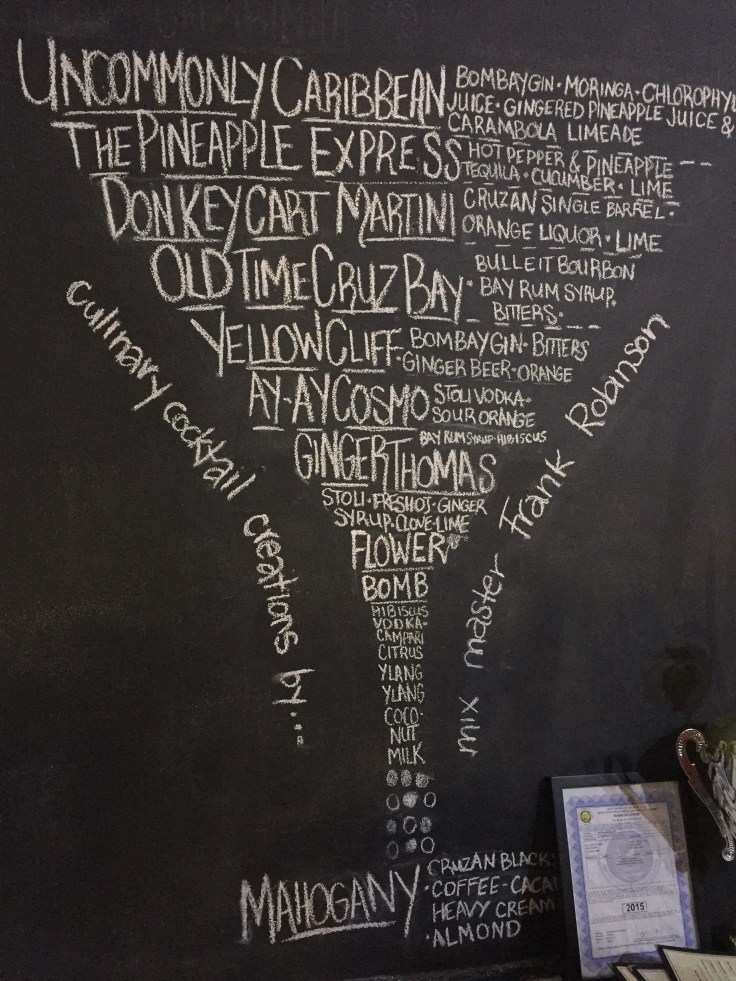 UNCOMMONLY CARIBBEAN
BOMBAY GIN · MORINGA · CHLOROPHYL
JUICE · GINGERED PINEAPPLE JUICE &
CARAMBOLA LIMEADE
THE PINEAPPLE EXPRESS
HOT PEPPER & PINEAPPLE
TEQUILA · CUCUMBER · LIME
DONKEY CART MARTINI
CRUZAN SINGLE BARREL ·
ORANGE LIQUOR · LIME
OLD TIME CRUZ BAY ·
BULLEIT BOURBON
BAY RUM SYRUP.
BITTERS ·
YELLOW CLIFF
BOMBAY GIN · BITTERS
· GINGER BEER - ORANGE
AY-AY COSMO
STOLI VODKA ·
SOUR ORANGE
BAY RUM SYRUP · HIBISCUS
GINGER THOMAS
STOLI · FRESH OJ · GINGER
SYRUP · CLOVE · LIME
FLOWER
BOMB
HIBISCUS
VODKA -
CAMPARI
CITRUS
YLANG
YLANG
COCO ·
NUT
MILK
culinary cocktail creations by...
mix master Frank Robinson
MAHOGANY
CRUZAN BLACK
· COFFEE - CACA
HEAVY CREAM
· ALMOND
2015